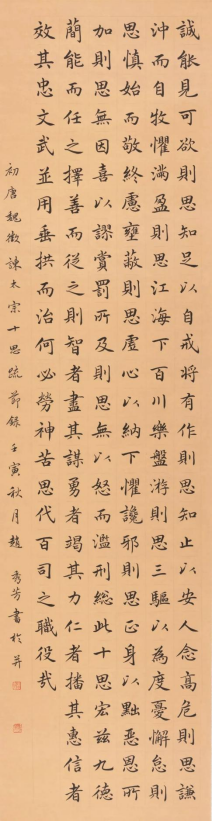 誠能見可欲則思知足以自戒將有作則思知止以安人念高危則思謙
沖而自牧懼滿盈則思江海下百川樂盤游則思三驅以為度憂懈怠則
思慎始而敬終慮壅蔽則思虛心以納下懼讒邪則思正身以黜惡恩所
加則思無因喜以謬賞罰所及則思無以怒而濫刑總此十思宏茲九德
簡能而任之擇善而從之則智者盡其謀勇者竭其力仁者播其惠信者
效其忠文武並用垂拱而治何必勞神苦思代百司之職役哉
初唐魏徵諫太宗十思疏節錄壬寅秋月趙秀芳書於并